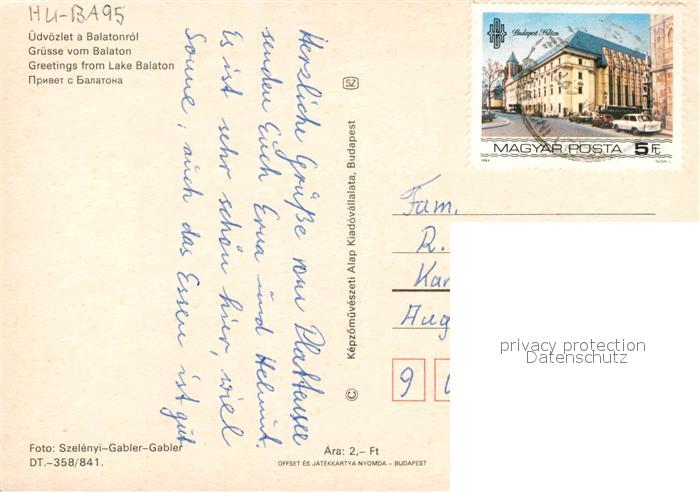 HU-BA95
Üdvözlet a Balatonról
Grüsse vom Balaton
Greetings from Lake Balaton
Привет с Балатона
Herzliche Grüße vom Plattensee
senden Euch Erna und Helmut.
Es ist sehr schön hier, viel
Sonne, auch das Essen ist gut.
Foto: Szelényi–Gabler–Gabler
DT.–358/841.
Ára: 2,– Ft
OFFSET ÉS JÁTÉKKÁRTYA NYOMDA – BUDAPEST
© Képzőművészeti Alap Kiadóvállalata, Budapest
SZ
Budapest Hilton
MAGYAR POSTA 5 Ft
1984
Fam.
R.
Kar
Aug
9
privacy protection
Datenschutz